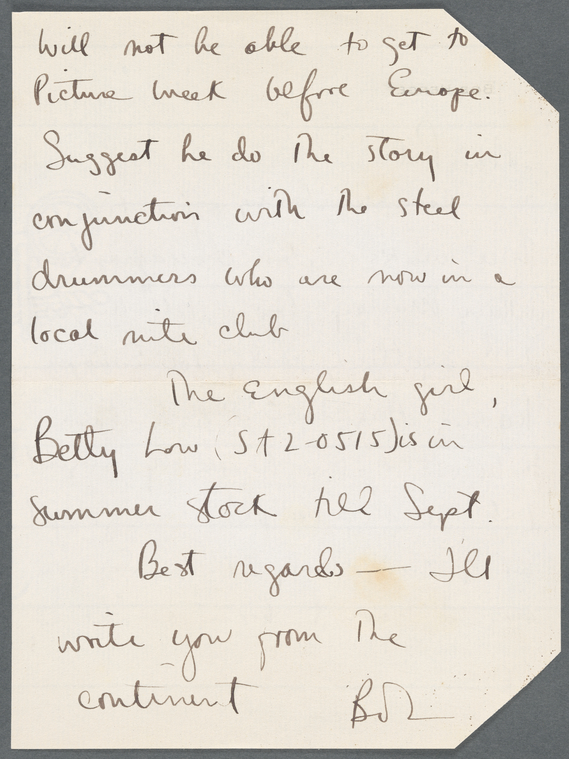 Will not be able to get to
Picture Week before Europe.
Suggest he do the story in
conjunction with the steel
drummers who are now in a
local nite club
The English girl,
Betty Low (St 2-0515) is in
summer stock till Sept.
Best regards — I'll
write you from the
continent Bob